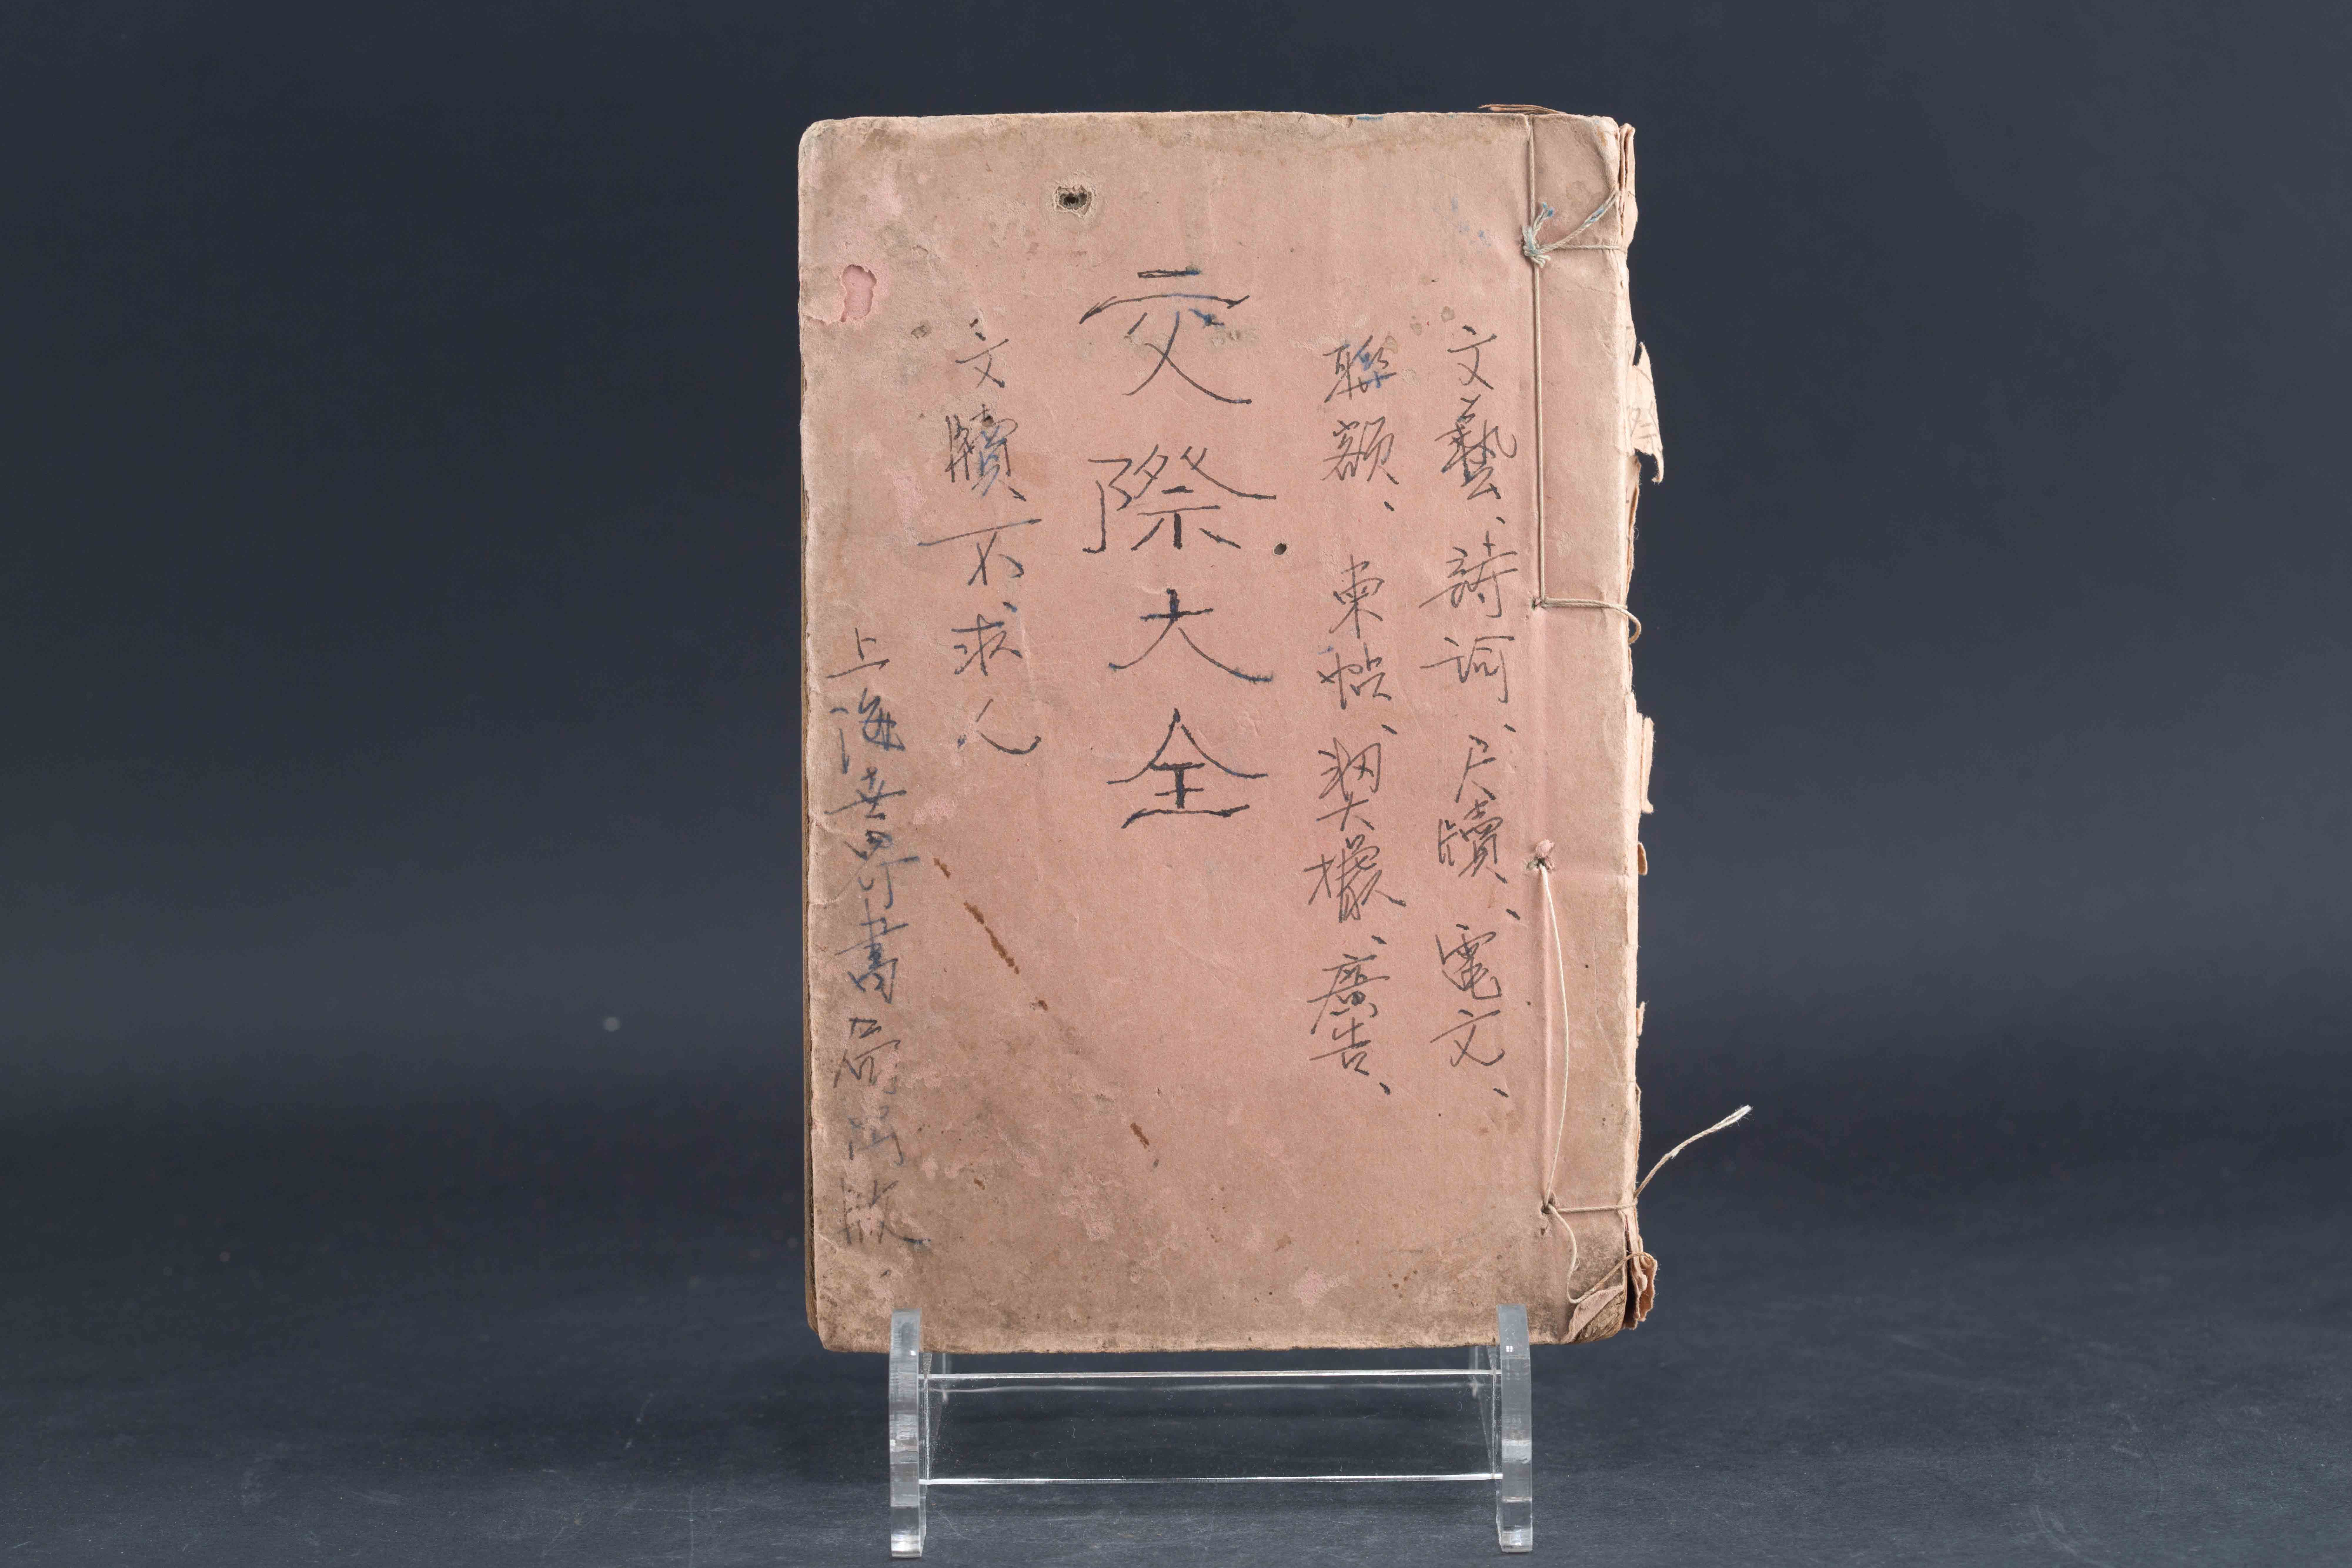 文藝、詩词、尺牘、電文、
聯額、柬帖、契據、廣告、
交際大全
文牘不求人
上海世界書局出版